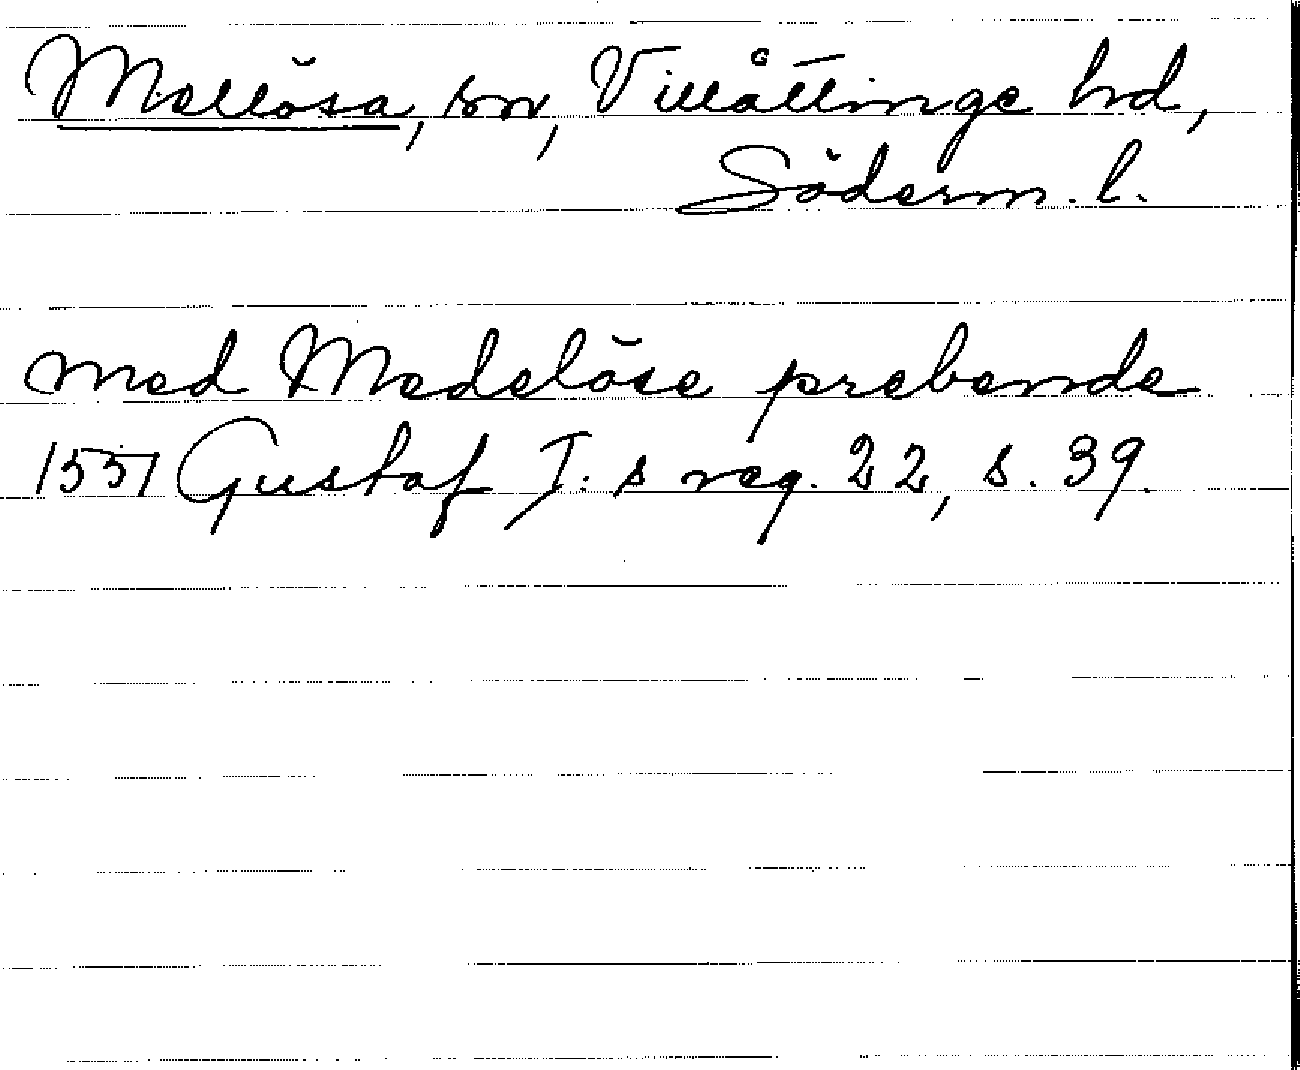 Mellösa, sn, Villåttinge hd,
Söderm. l.
med Medelöse prebende
1551 Gustaf I: s reg. 22, s. 39.